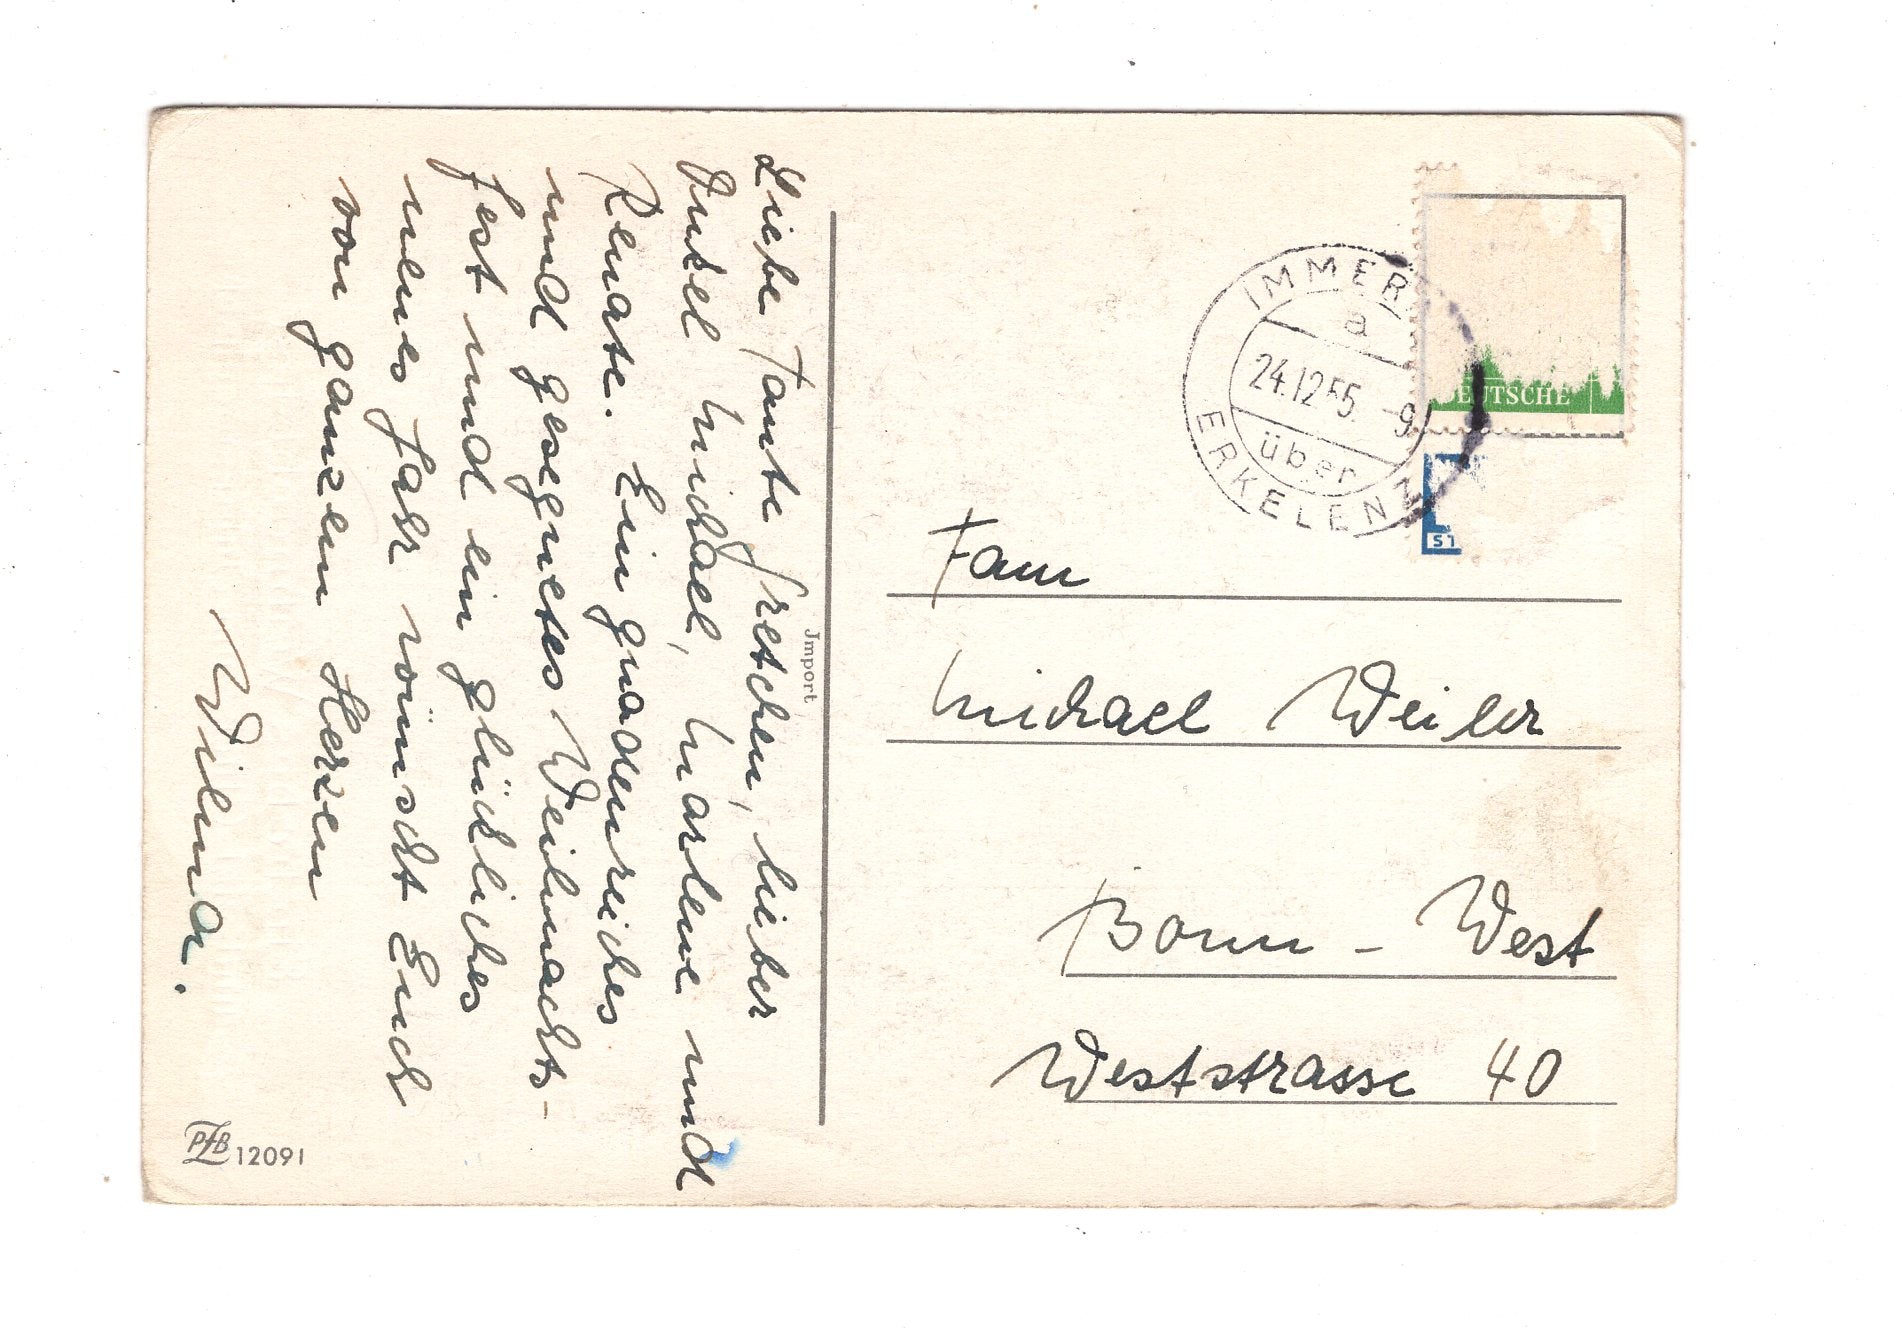 Liebe Tante Gretchen, lieber
Onkel Michael, Marlene und
Renate. Ein gnadenreiches
und gesegnetes Weihnachts-
fest und ein glückliches
neues Jahr wünscht Euch
von ganzem Herzen
Wilma.
Import
PZB 12091
IMMER
a
24.12.55.-9
über
ERKELENZ
DEUTSCHE
ST
Fam
Michael Weiler
Bonn - West
Weststrasse 40